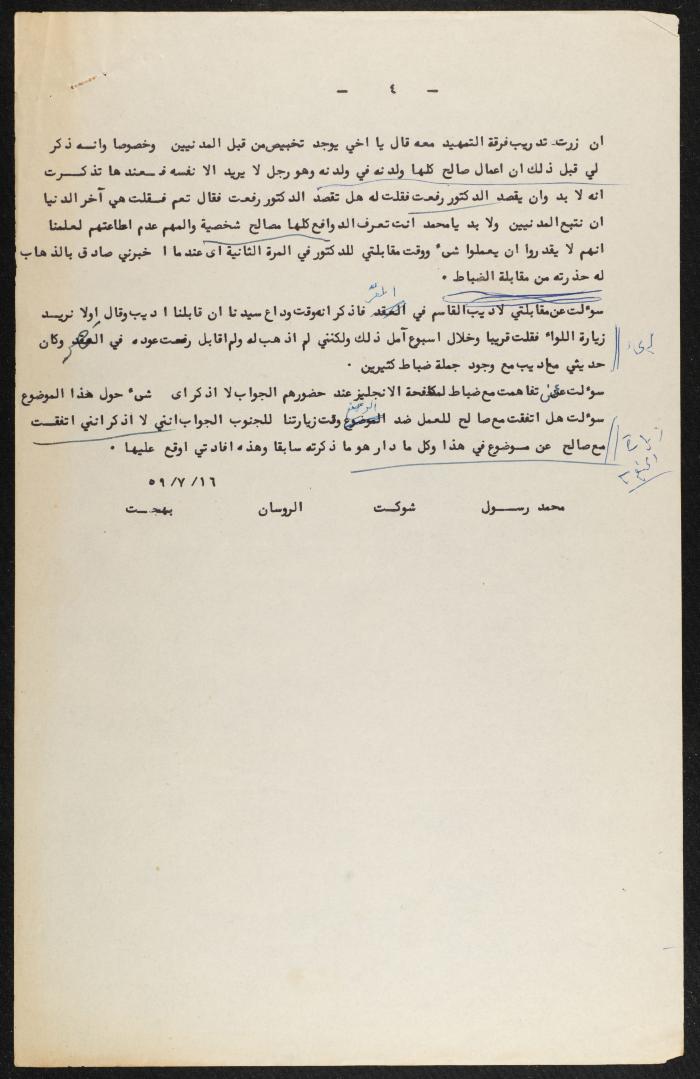 - ٤ -
ان زرت تدريب فرقة التمهيد معه قال يا اخي يوجد تخبيص من قبل المدنيين وخصوصا وانه ذكر
لي قبل ذلك ان اعمال صالح كلها ولدنه في ولدنه وهو رجل لا يريد الا نفسه فعندها تذكرت
انه لا بد وان يقصد الدكتور رفعت فقلت له هل تقصد الدكتور رفعت فقال تعم فقلت هي آخر الدنيا
ان نتبع المدنيين ولا بد يا محمد انت تعرف الدوافع كلها مصالح شخصية والمهم عدم اطاعتهم لعلمنا
انهم لا يقدروا ان يعملوا شىء ووقت مقابلتي للدكتور في المرة الثانية اى عندما ا خبرني صادق بالذهاب
له حذرته من مقابلة الضباط .
سوئلت عن مقابلتي لاديب القاسم في المقر فاذكر انه وقت وداع سيدنا ان قابلنا اديب وقال اولا نريد
زيارة اللواء فقلت قريبا وخلال اسبوع آمل ذلك ولكنني لم اذهب له ولم اقابل رفعت عوده في وكان
حديثي مع اديب مع وجود جملة ضباط كثيرين .
سوئلت عن تفاهمت مع ضباط لمكافحة الانجليز عند حضورهم الجواب لا اذكر اى شىء حول هذا الموضوع
سوئلت هل اتفقت مع صالح للعمل ضد الوضع وقت زيارتنا للجنوب الجواب انني لا اذكر انني اتفقت
مع صالح عن موضوع في هذا وكل ما دار هو ما ذكرته سابقا وهذه افادتي اوقع عليها .
٥٩/٧/١٦
محمد رسول شوكت الروسان بهجت